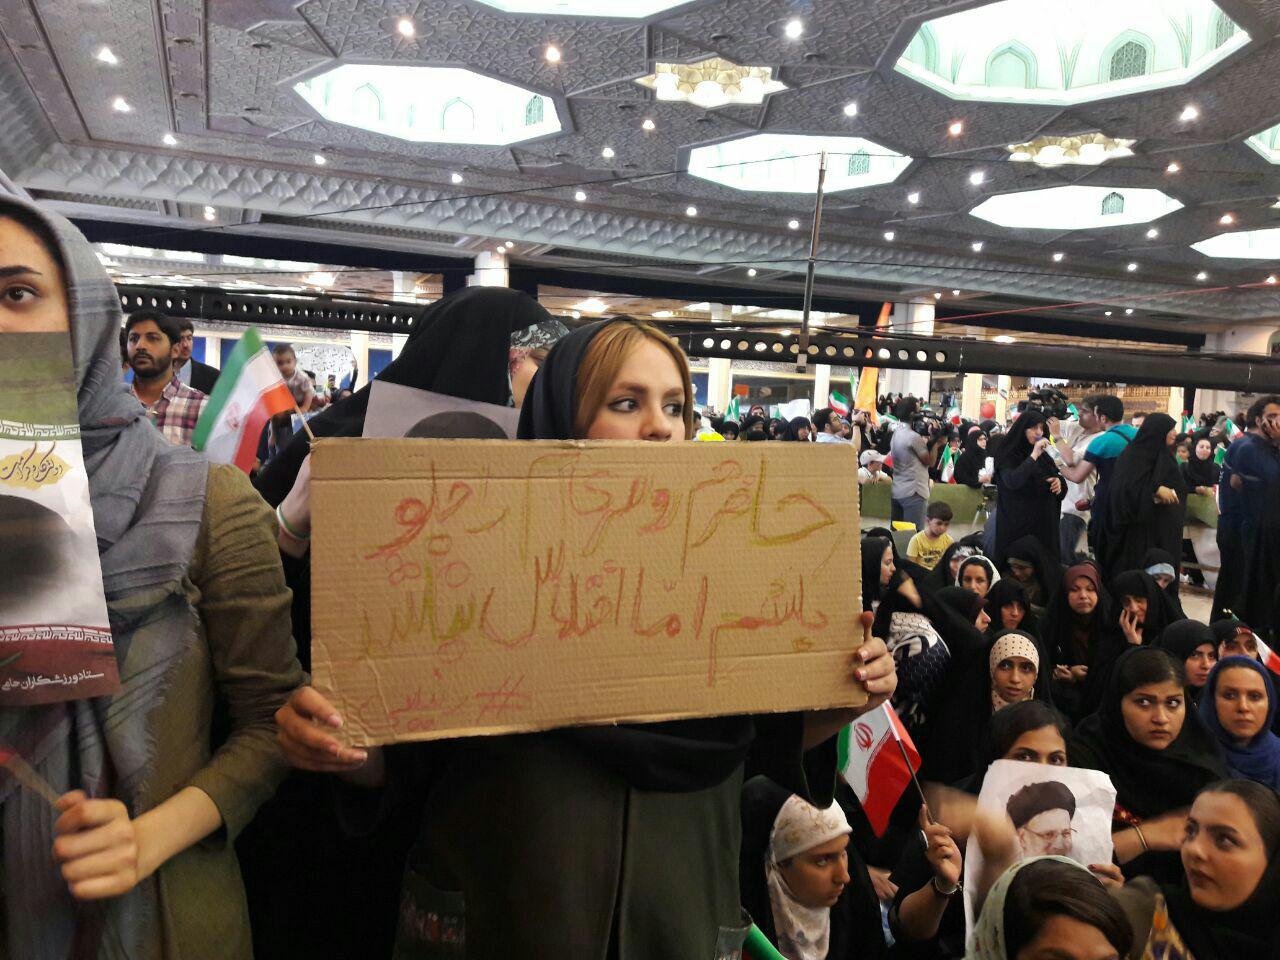 حاضرم روسری ام را جلو
بکشم امّا اختلاس نباشد
#
دولت کار و کرامت
ستاد ورزشکاران حامی